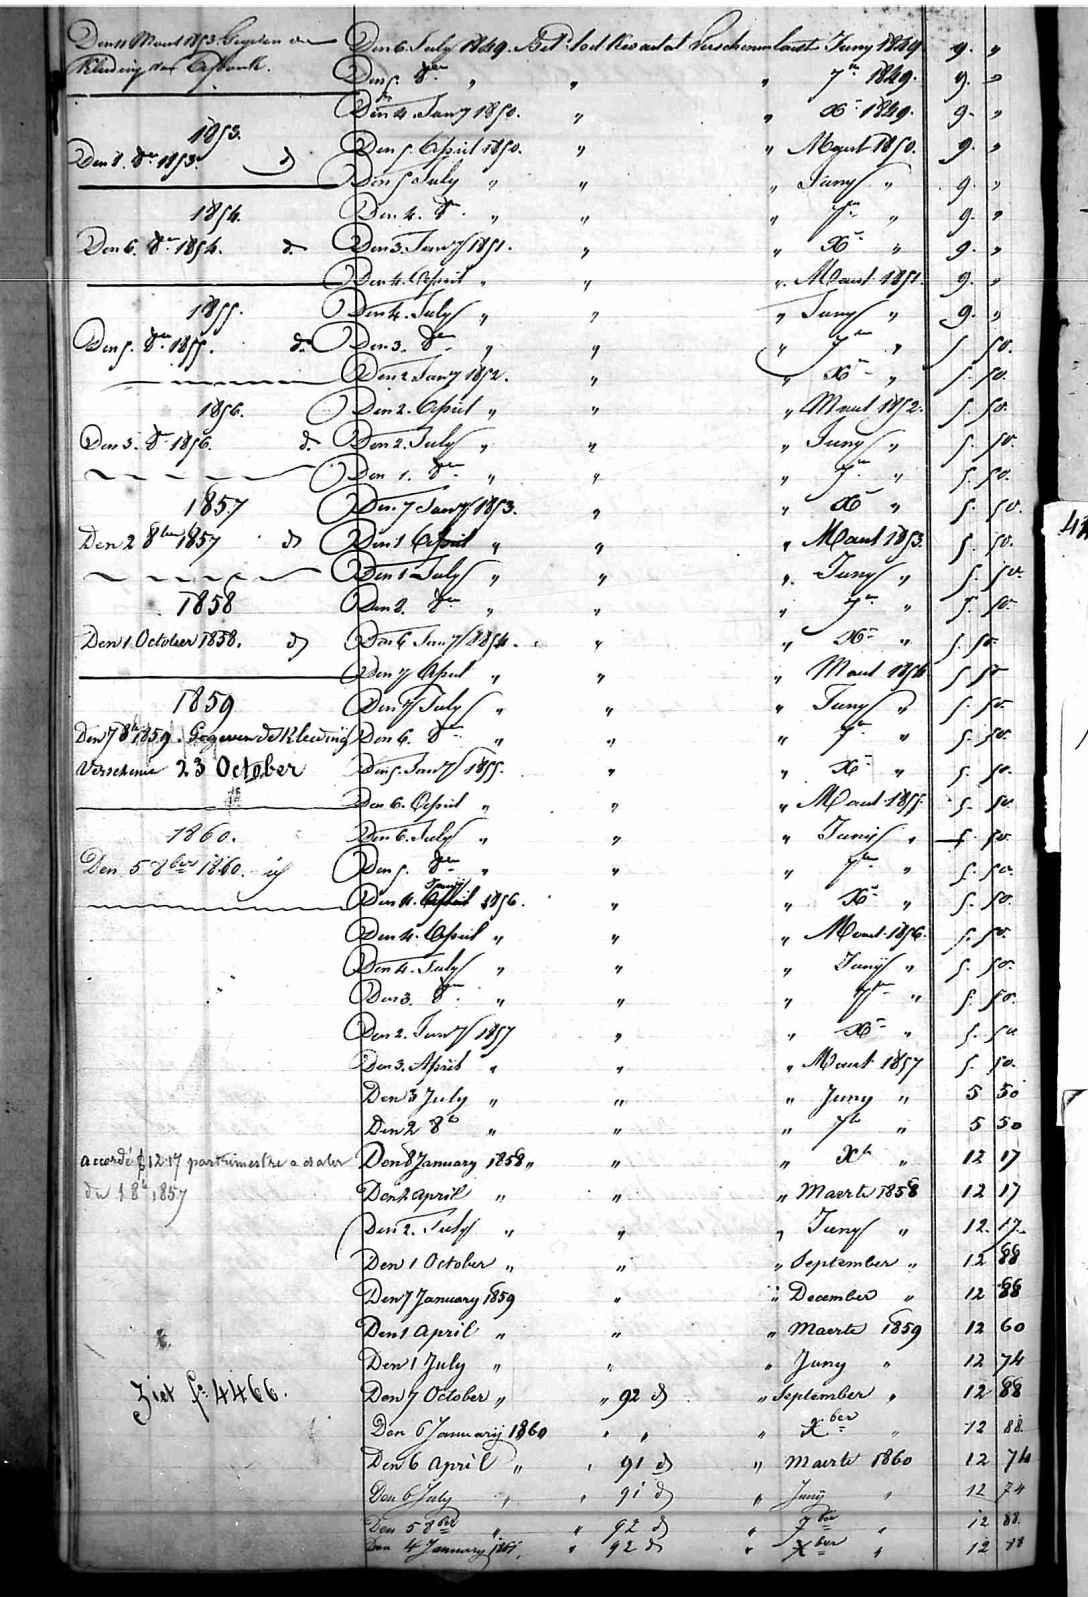 Den 11 Maart 1853 Gegeven de
Kleeding
1853.
Den 8. 8re 1853. d
1854.
Den 6. 8re 1854. d.
1855.
Den 5. 8re 1855. d.
1856.
Den 3. 8re 1856. d.
1857
Den 2 8ber 1857 d
1858
Den 1 October 1858. d
1859
Den 7 8b 1859. Gegeven de Kleeding
Verschenen 23 October
1860.
Den 5 8ber 1860. id
accordé f 12.17 par trimestre a dater
du 1 8b 1857
Ziet fo 4466.
Den 6 July 1849. Bet. tot Kwartaal verschenen laatst Juny 1849. 9. "
Den 5. 8re " " " 7re 1849. 9. "
Den 4 Jany 1850. " " Xre 1849. 9. "
Den 5. April 1850. " " Maart 1850. 9. "
Den 5 July " " " Juny " 9. "
Den 4. 8re " " " 7re " 9. "
Den 3. Jany 1851. " " Xre " 9. "
Den 4. April " " " Maart 1851. 9. "
Den 4. July " " " Juny " 9. "
Den 3. 8re " " " 7re " 5. 50.
Den 2 Jany 1852. " " Xre " 5. 50.
Den 2. April " " " Maart 1852. 5. 50.
Den 2. July " " " Juny " 5. 50.
Den 1. 8re " " " 7re " 5. 50.
Den 7 Jany 1853. " " Xre " 5. 50.
Den 1 April " " " Maart 1853. 5. 50.
Den 1 July " " " Juny " 5. 50.
Den 8re " " " 7re " 5. 50.
Den 6 Jany 1854. " " Xre " 5. 50
Den 7 April " " " Maart 1854 5. 50
Den 7 July " " " Juny " 5. 50.
Den 6. 8re " " " 7re " 5. 50.
Den 5. Jany 1855. " " Xre " 5. 50.
Den 6. April " " " Maart 1855. 5. 50.
Den 6. July " " " Junij " 5. 50.
Den 5. 8re " " " 7re " 5. 50.
Janij
Den 4. April 1856. " " Xre " 5. 50.
Den 4. April " " " Maart 1856. 5. 50.
Den 4. July " " " Junij " 5. 50.
Den 3. 8re " " " 7re " 5. 50.
Den 2. Jany 1857 " " Xre " 5. 50
Den 3. April " " " Maart 1857 5. 50.
Den 3 July " " " Juny " 5 50
Den 2 8b " " " 7b " 5 50
Den 8 January 1858 " " " Xb " 12 17
Den 2 April " " " Maerte 1858 12 17
Den 2. July " " " Juny " 12. 17.
Den 1 October " " " September " 12 88
Den 7 January 1859 " " December " 12 88
Den 1 April " " " Maerte 1859 12 60
Den 1 July " " " Juny " 12 74
Den 7 October " " 92 d " September " 12 88
Den 6 Januarij 1860 " " " Xber " 12 88.
Den 6 April " " 91 d " Maerte 1860 12 74
Den 6 July " " 91 d " Junij " 12 74
Den 5 8ber " " 92 d " 7ber " 12 88.
Den 4 January 1861. " 92 d " Xber " 12